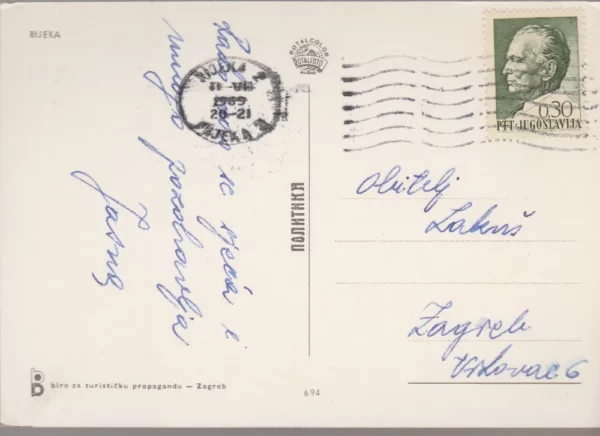 RIJEKA
ROTALCOLOR
ROTALFOTO
RIJEKA 2
1969
20-21
RIJEKA 2
0.30
PTT-JUGOSLAVIJA
se sjeća i
mnogo pozdravlja
Jasna
ПОЛИТИКА
Obitelj
Lakuš
Zagreb
Vrhovac 6
biro za turističku propagandu — Zagreb
694